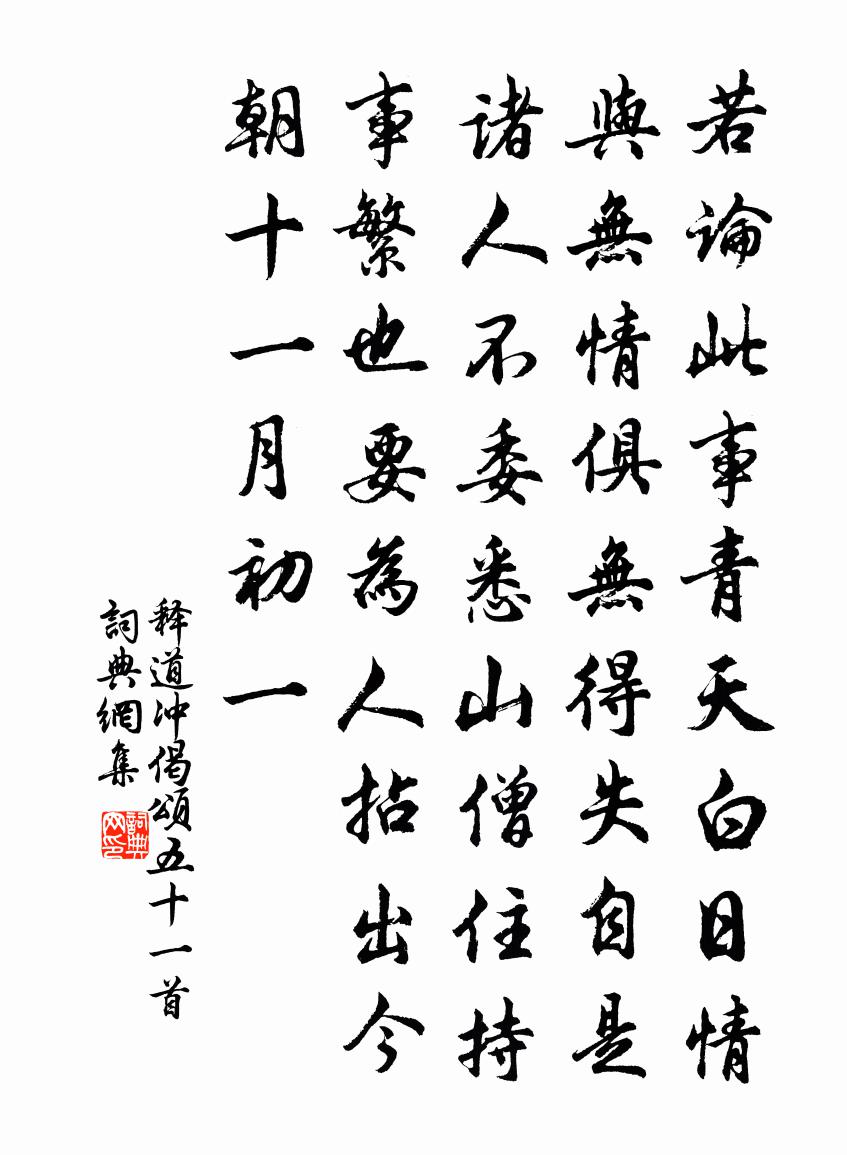 若論此事青天白日情
與無情俱無得失自是
諸人不委悉山僧住持
事繁也要為人拈出今
朝十一月初一
释道冲偈頌五十一首
詞典網集
詞典
网印